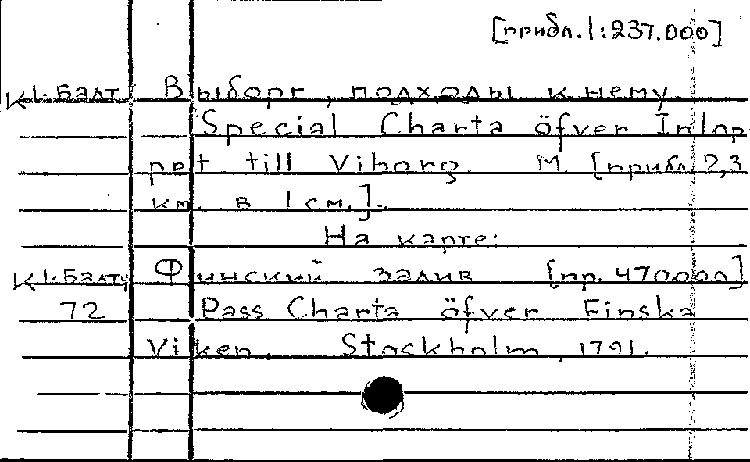 [прибл. 1:237.000]
К1-Балт. Выборг, подходы к нему.
Special Charta öfver Inlop
pet till Viborg. М. [прибл. 2,3
км. в 1 см.].
На карте:
К1-Балт. Финский залив [пр. 470000]
72 Pass Charta öfver Finska
Viken. Stockholm, 1791.